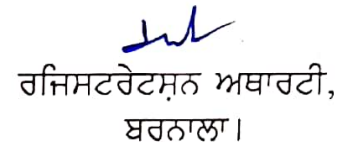 ਰਜਿਸਟਰੇਟਸ਼ਨ ਅਥਾਰਟੀ,
ਬਰਨਾਲਾ।